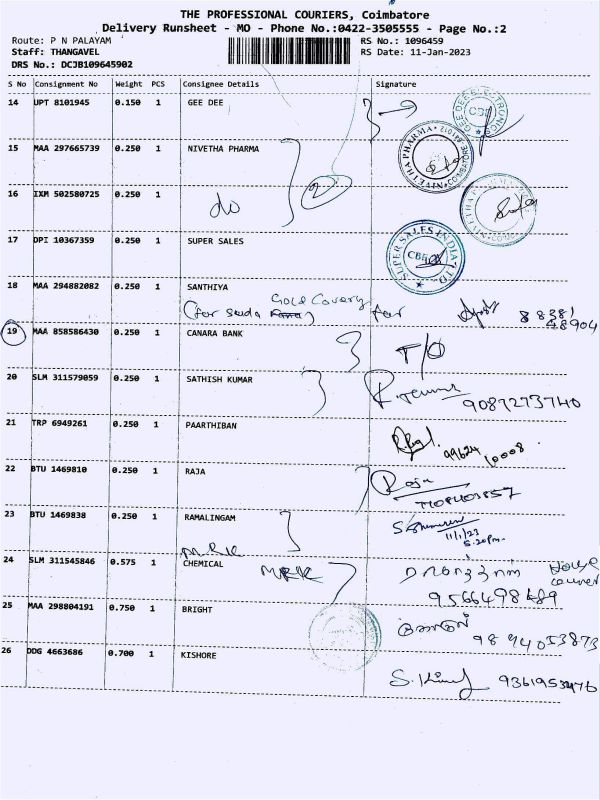 THE PROFESSIONAL COURIERS, Coimbatore
Delivery Runsheet - MO - Phone No.:0422-3505555 - Page No.:2
Route: P N PALAYAM RS No.: 1096459
Staff: THANGAVEL RS Date: 11-Jan-2023
DRS No.: DCJB109645902
S No Consignment No Weight PCS Consignee Details Signature
14 UPT 8101945 0.150 1 GEE DEE
GEE DEE ELECTRONICS CBE
15 MAA 297665739 0.250 1 NIVETHA PHARMA
NIVETHA PHARMA
16 IXM 502580725 0.250 1 do 2
NIVETHA PHARMA
17 DPI 10367359 0.250 1 SUPER SALES
SUPER SALES INDIA LTD CBE
18 MAA 294882082 0.250 1 SANTHIYA
Gold Covery for 88381
48904
19 MAA 858586430 0.250 1 CANARA BANK T/O
20 SLM 311579059 0.250 1 SATHISH KUMAR
9089273740
21 TRP 6949261 0.250 1 PAARTHIBAN
99624 10008
22 BTU 1469810 0.250 1 RAJA Raja
23 BTU 1469838 0.250 1 RAMALINGAM
11/1/23
5.20pm
M.R.K
24 SLM 311545846 0.575 1 CHEMICAL MRK House
owner
25 MAA 298804191 0.750 1 BRIGHT
26 DDG 4663686 0.700 1 KISHORE